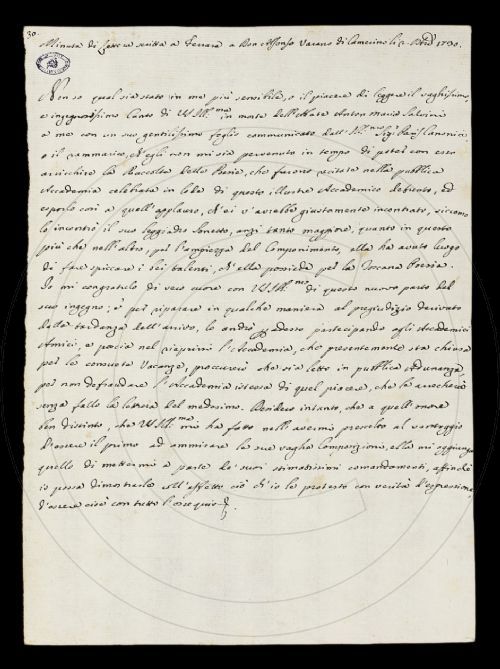 30.
Minuta di Lettera scritta a Ferrara a Don Alfonso Varano di Camerino li 2. 1730.
Non so qual sia stato in me più sensibile, o il piacere di leggere il vaghissimo,
e ingegnosissimo Canto di V.S. Ill.ma in morte dell'Abate Anton Maria Salvini
a me con un suo gentilissimo foglio communicato dall' Ill.mo Sig.r Canonico
o il rammarico, ch'egli non mi sia pervenuto in tempo di poter con esso
arricchire la Raccolta delle Poesie, che furono recitate nella pubblica
Accademia celebrata in lode di questo illustre Accademico defonto, ed
esporlo così a quell'applauso, ch'ei v'avrebbe giustamente incontrato, siccome
lo incontrò il suo leggiadro Sonetto, anzi tanto maggiore, quanto in questo
più che nell'altro, per l'ampiezza del Componimento, ella ha avuto luogo
di fare spiccare i bei talenti, ch'ella possiede per la Toscana Poesia.
Io mi congratulo di vero cuore con V.S. Ill.ma di questo nuovo parto del
suo ingegno; e per riparare in qualche maniera al pregiudizio derivato
dalla tardanza dell'arrivo, lo andrò adesso partecipando agli Accademici
Amici, e poscia nel riaprirsi l'Accademia, che presentemente sta chiusa
per le consuete Vacanze, proccurerò che sia letto in pubblica Adunanza,
per non defraudare l'Accademia istessa di quel piacere, che le arrecherà
senza fallo la lettura del medesimo. Desidero intanto, che a quell'onore
ben distinto, che V.S. Ill.ma mi ha fatto nell'avermi prescelto al vantaggio
d'essere il primo ad ammirare la sua vaga Composizione, ella mi aggiunga
quello di mettermi a parte de' suoi stimatissimi comandamenti, affinchè
io possa dimostrarle coll'effetto ciò ch'io le protesto con verità d'espressione
d'essere cioè con tutto l'ossequio